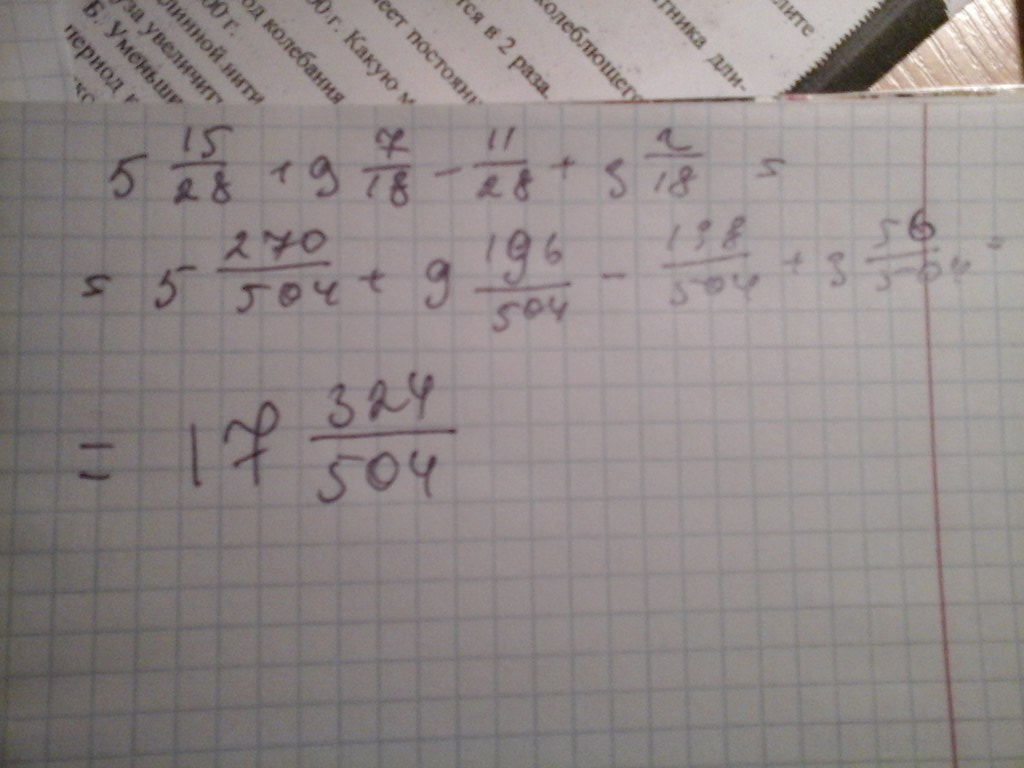 елите
ятника дли-
колеблющегос
тся в 2 раза.
еет постоянн
00 г. Какую м
од колебания
00 г.
линной нити
уза увеличить
Б. Уменьши
период к
5 15/28 + 9 7/18 - 11/28 + 3 2/18 =
= 5 270/504 + 9 196/504 - 198/504 + 3 56/504 =
= 17 324/504